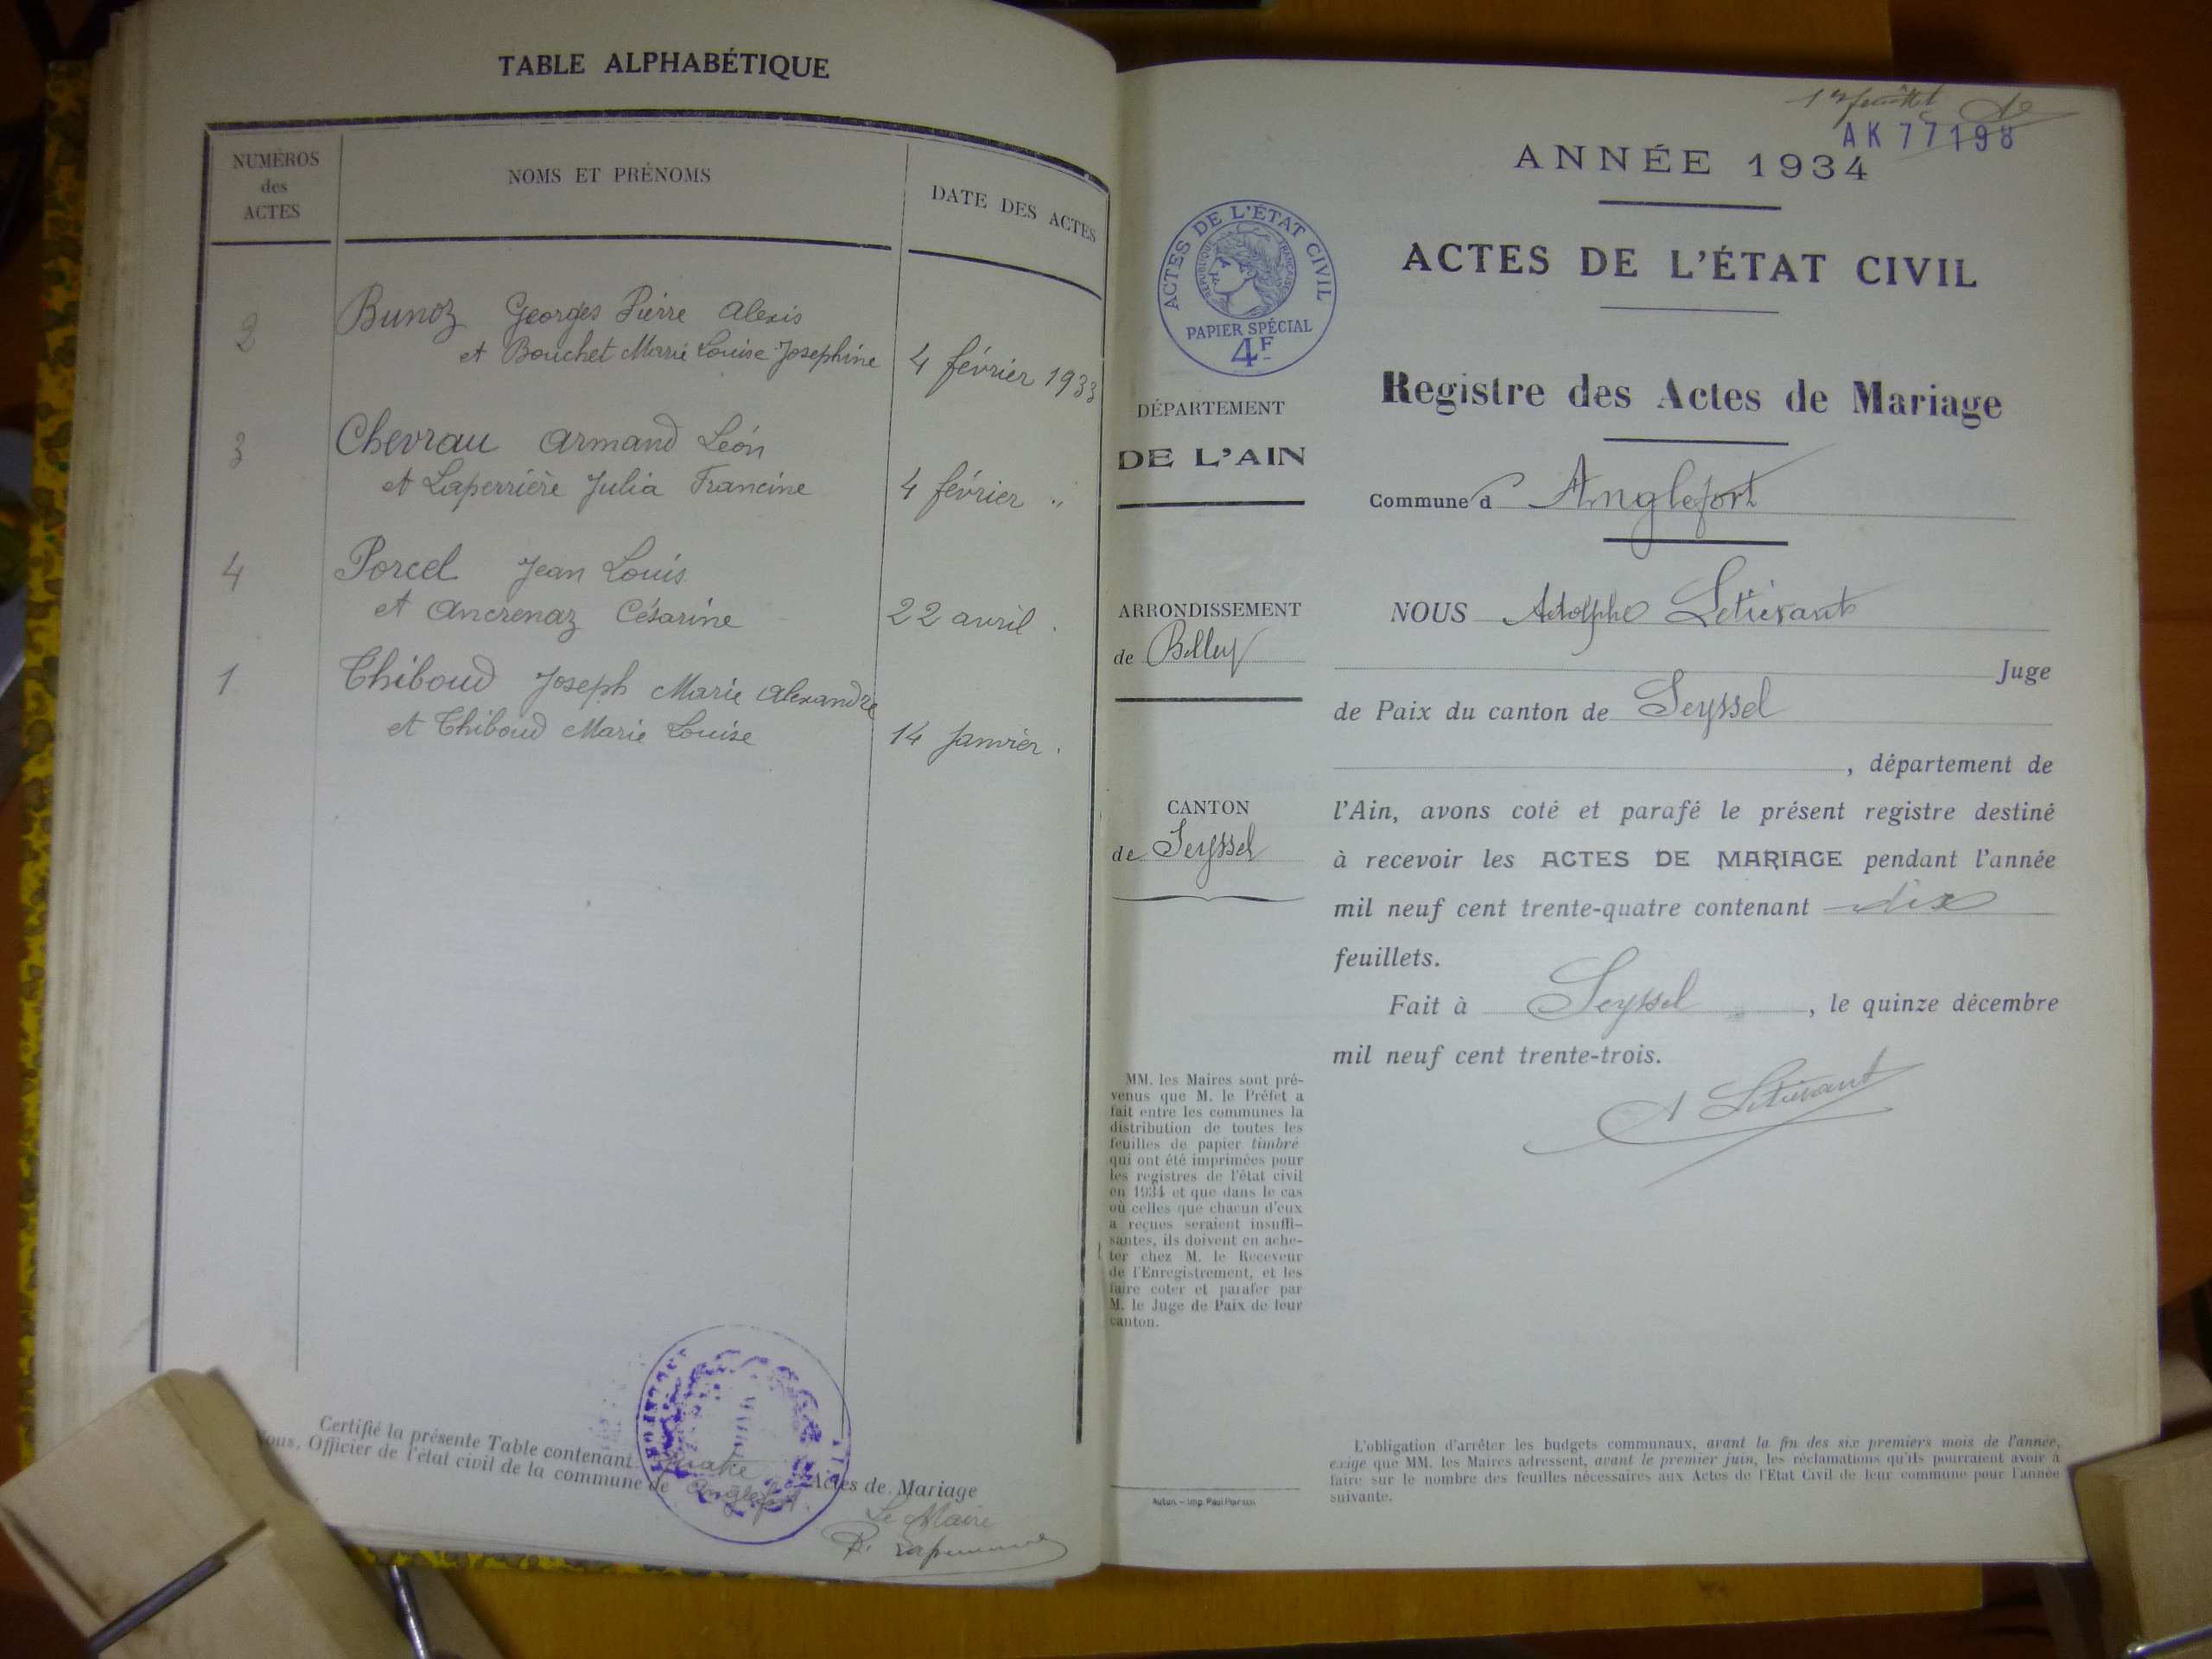 TABLE ALPHABÉTIQUE
NUMÉROS
des
ACTES
NOMS ET PRÉNOMS
DATE DES ACTES
2
Bunoz Georges Pierre Alexis
et Bouchet Marie Louise Josephine
4 février 1933
3
Chevrau Armand Léon
et Laperrière Julia Francine
4 février "
4
Porcel Jean Louis
et Ancrenaz Césarine
22 avril .
1
Thiboud Joseph Marie Alexandre
et Thiboud Marie Louise
14 janvier .
Certifié la présente Table contenant quatre Actes de Mariage
Nous, Officier de l'état civil de la commune de Anglefort.
Le Maire
1er feuillet
AK 77198
ANNÉE 1934
ACTES DE L'ÉTAT CIVIL
RÉPUBLIQUE FRANÇAISE
PAPIER SPÉCIAL
4F
ACTES DE L'ÉTAT CIVIL
Registre des Actes de Mariage
DÉPARTEMENT
DE L'AIN
Commune d Anglefort
ARRONDISSEMENT
de Belley
CANTON
de Seyssel
NOUS Adolphe Létiévant
Juge
de Paix du canton de Seyssel
, département de
l'Ain, avons coté et parafé le présent registre destiné
à recevoir les ACTES DE MARIAGE pendant l'année
mil neuf cent trente-quatre contenant dix
feuillets.
Fait à Seyssel, le quinze décembre
mil neuf cent trente-trois.
A Létiévant
MM. les Maires sont pré-
venus que M. le Préfet a
fait entre les communes la
distribution de toutes les
feuilles de papier timbré
qui ont été imprimées pour
les registres de l'état civil
en 1934 et que dans le cas
où celles que chacun d'eux
a reçues seraient insuffi-
santes, ils doivent en ache-
ter chez M. le Receveur
de l'Enregistrement, et les
faire coter et parafer par
M. le Juge de Paix de leur
canton.
Autun. – Imp. Paul
L'obligation d'arrêter les budgets communaux, avant la fin des six premiers mois de l'année,
exige que MM. les Maires adressent, avant le premier juin, les réclamations qu'ils pourraient avoir à
faire sur le nombre des feuilles nécessaires aux Actes de l'Etat Civil de leur commune pour l'année
suivante.